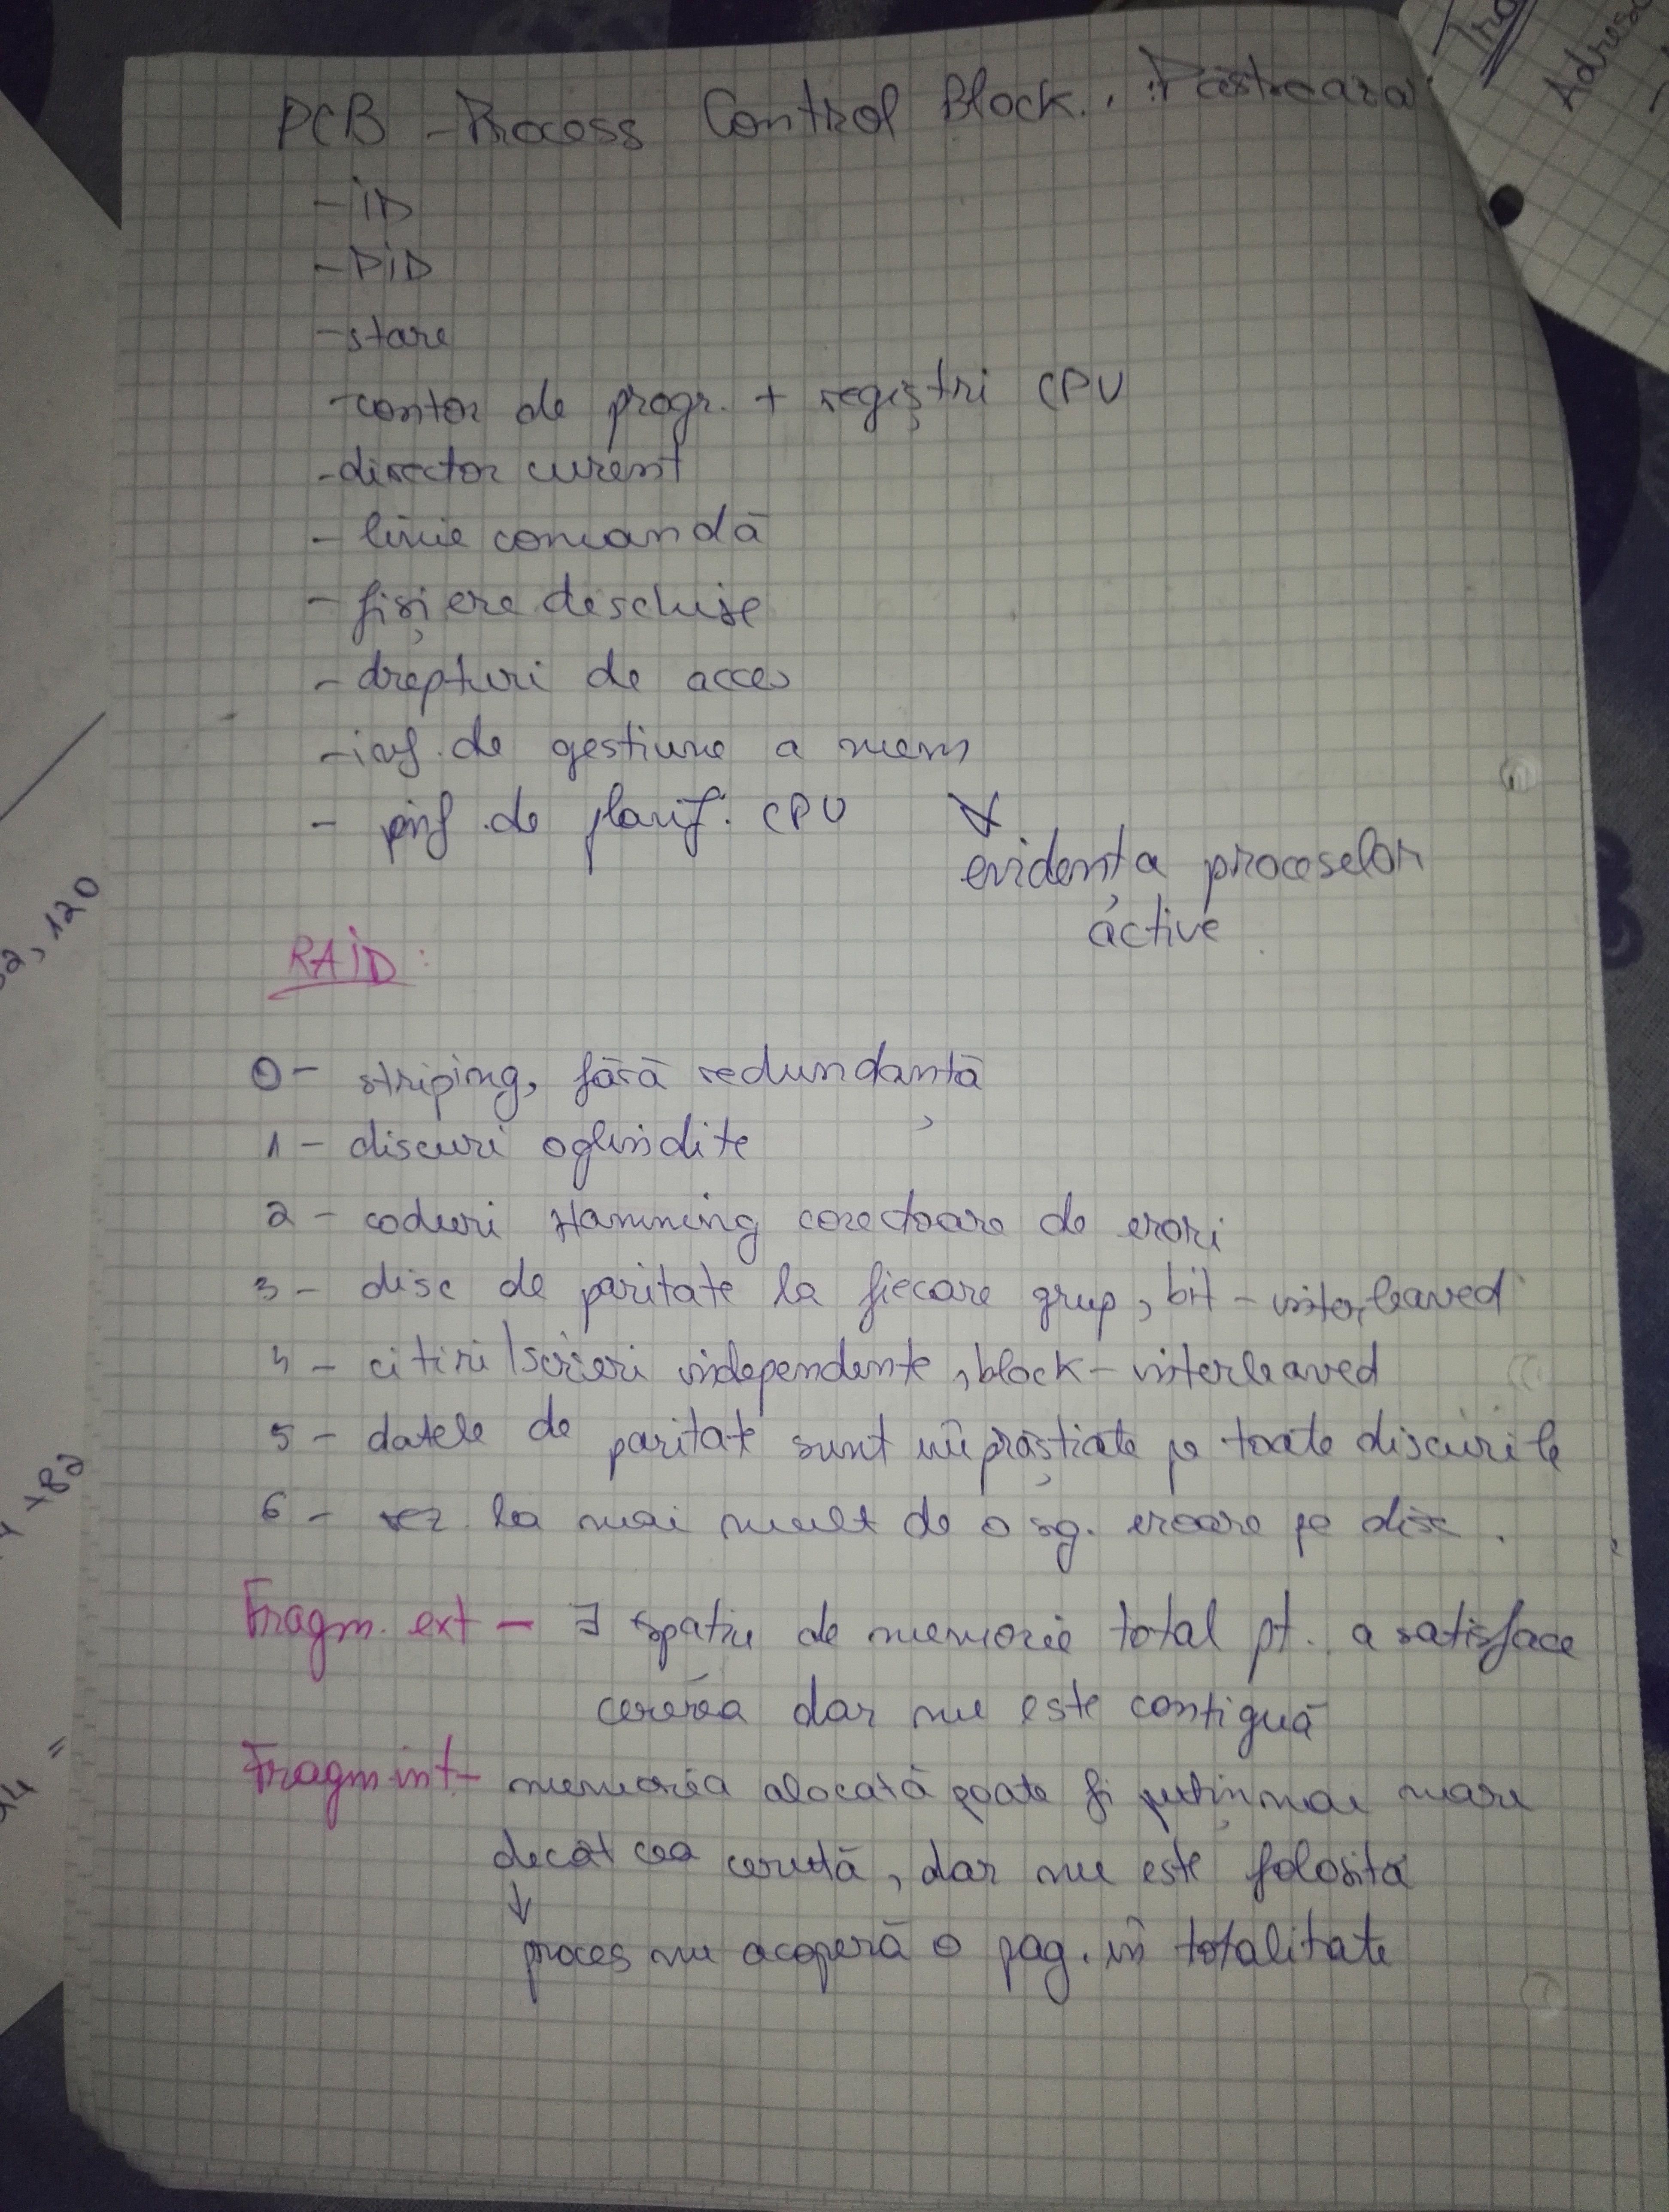 PCB - Process Control Block. Păstrează
- ID
- PID
- stare
- contor de progr. + regiștri CPU
- director curent
- linie comandă
- fișiere deschise
- drepturi de acces
- inf. de gestiune a mem
- inf. de planif. CPU
evidența proceselor
active
RAID:
0 - striping, fără redundanță
1 - discuri oglindite
2 - coduri Hamming corectoare de erori
3 - disc de paritate la fiecare grup, bit - interleaved
4 - citiri/scrieri independente, block - interleaved
5 - datele de paritate sunt împrăștiate pe toate discurile
6 - rez. la mai mult de o sg. eroare pe disc.
Fragm. ext - ∃ spatiu de memorie total pt. a satisface
cererea dar nu este contiguă
Fragm int - memoria alocată poate fi puțin mai mare
decât cea cerută, dar nu este folosită
↓
proces nu acoperă o pag. în totalitate
Adrese
, 120